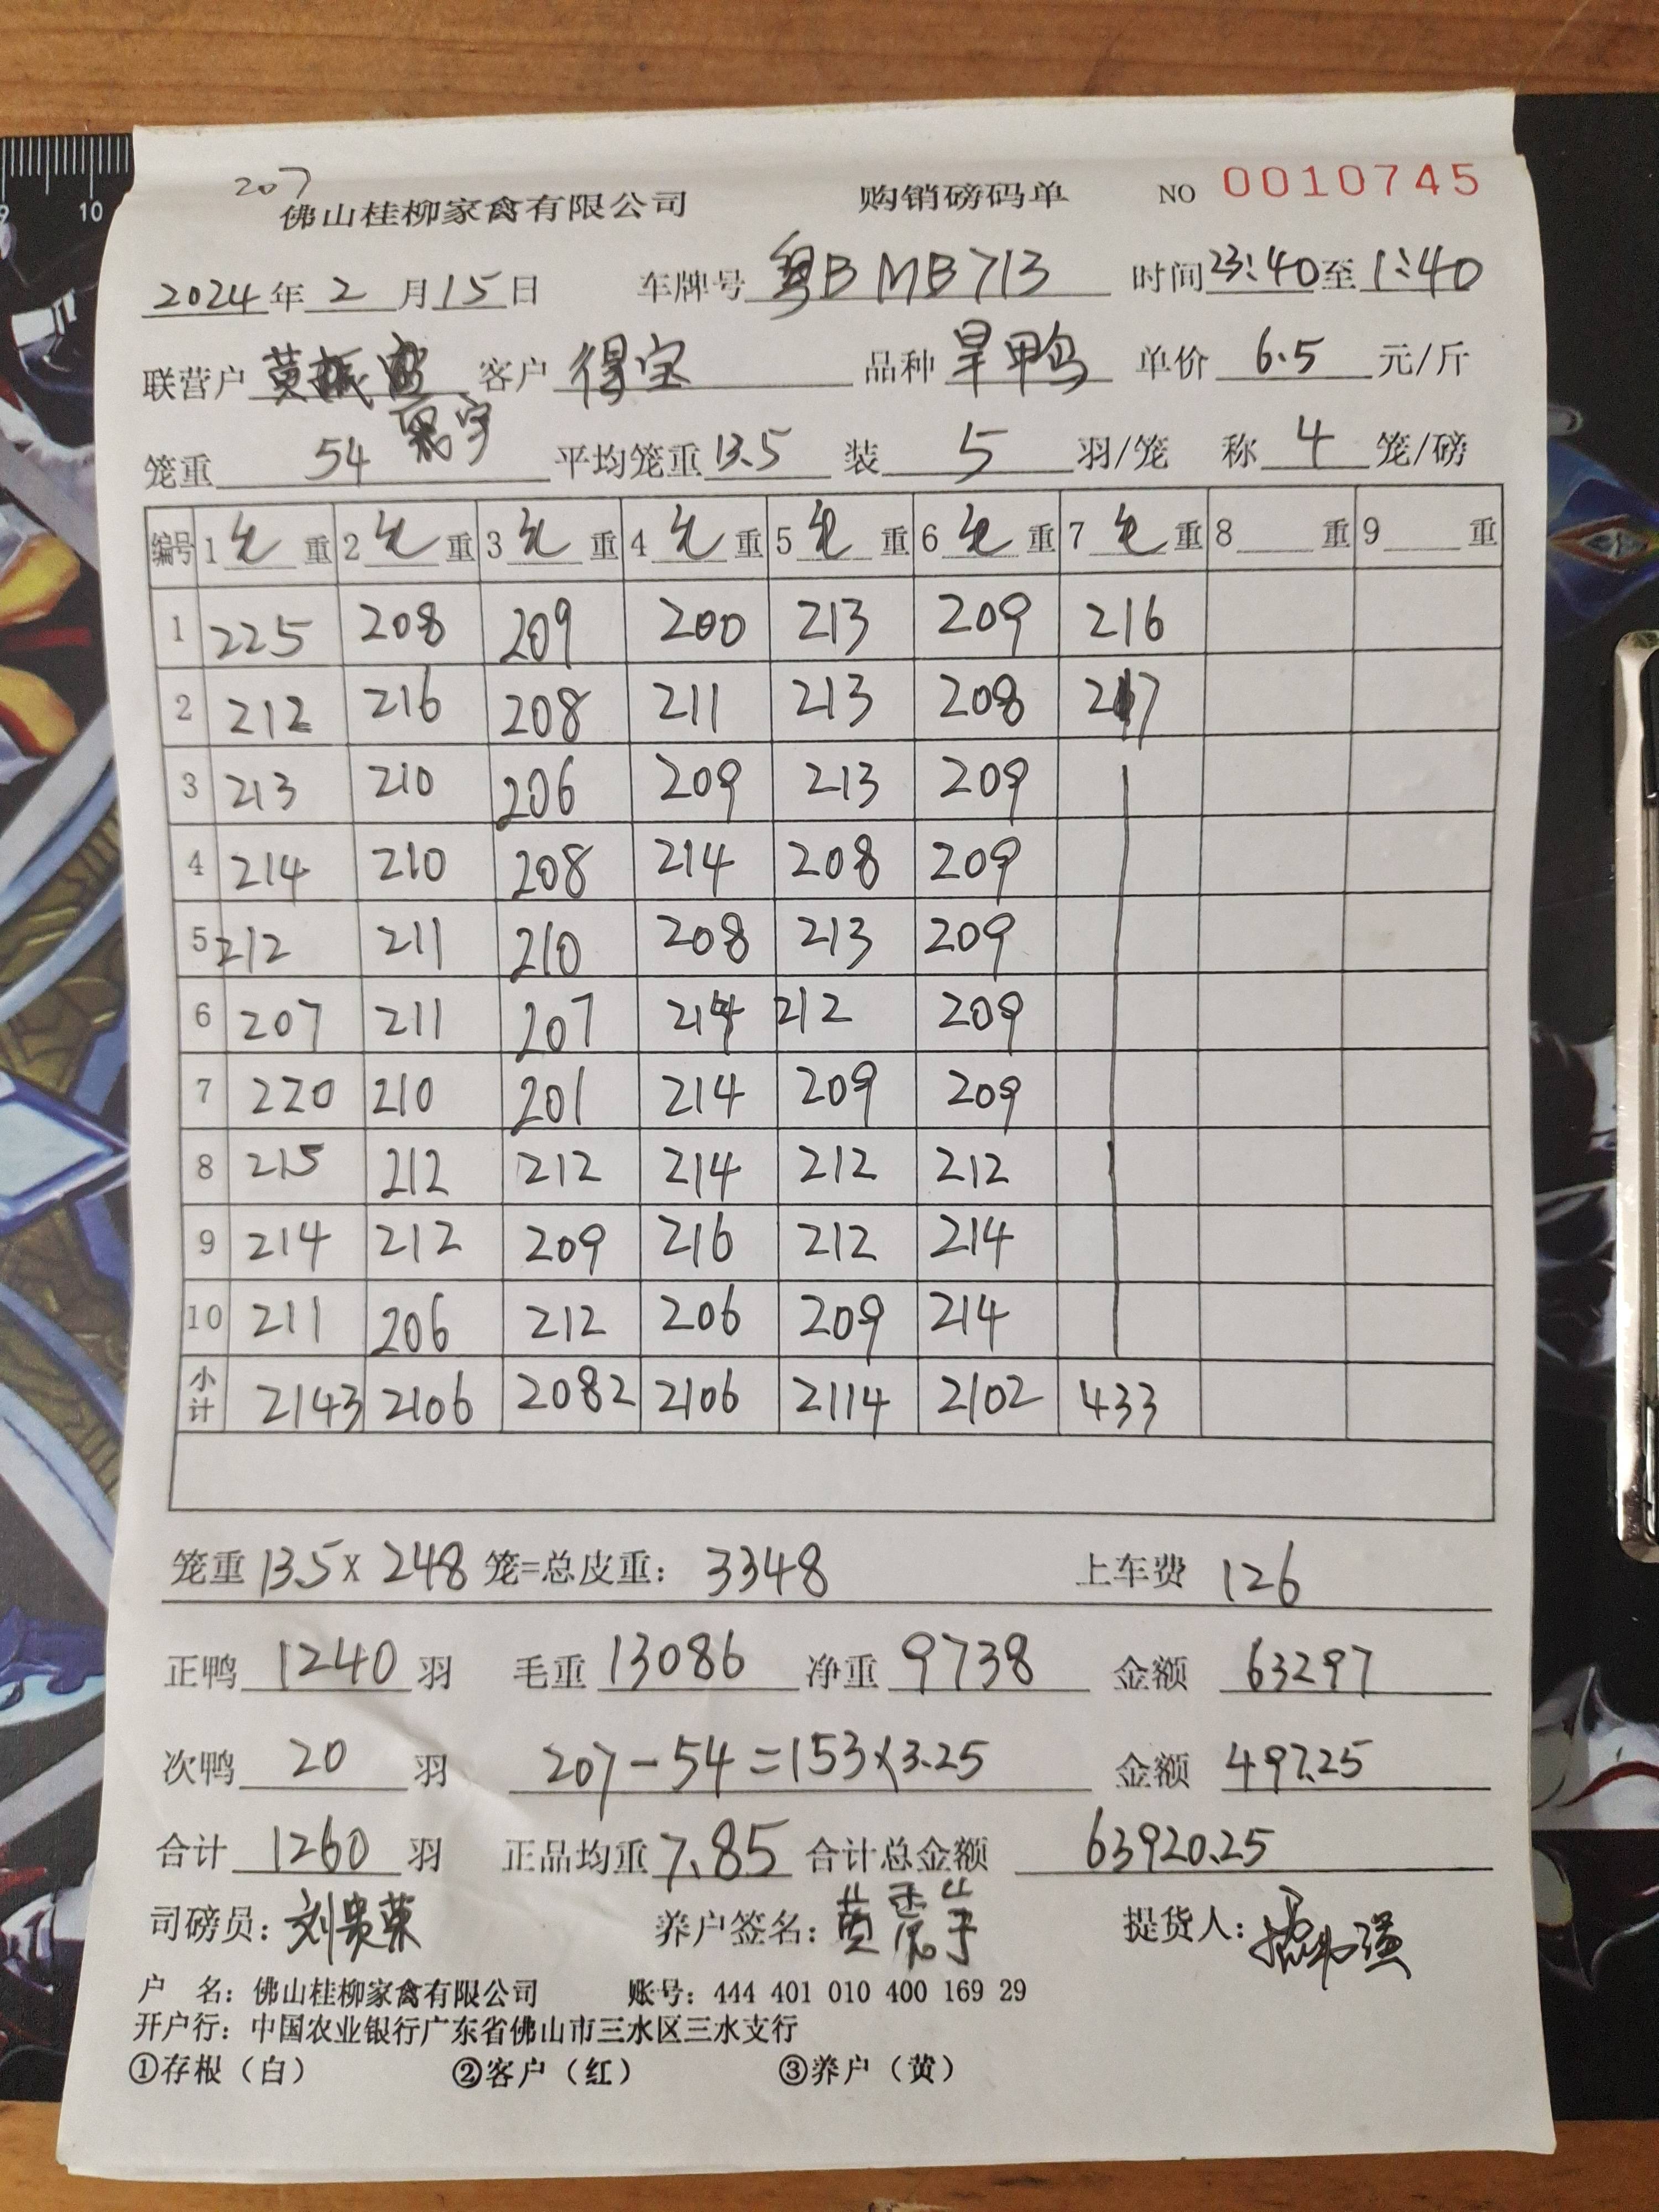 207
佛山桂柳家禽有限公司 购销磅码单 NO 0010745
2024年2月15日 车牌号 粤BMB713 时间23:40至1:40
联营户 黄 客户 得宝 品种 旱鸭 单价 6.5 元/斤
笼重 54 平均笼重 13.5 装 5 羽/笼 称 4 笼/磅
编号 1 毛 重 2 毛 重 3 毛 重 4 毛 重 5 毛 重 6 毛 重 7 毛 重 8 重 9 重
1 225 208 209 200 213 209 216
2 212 216 208 211 213 208 217
3 213 210 206 209 213 209
4 214 210 208 214 208 209
5 212 211 210 208 213 209
6 207 211 207 214 212 209
7 220 210 201 214 209 209
8 215 212 212 214 212 212
9 214 212 209 216 212 214
10 211 206 212 206 209 214
小计 2143 2106 2082 2106 2114 2102 433
笼重 13.5 x 248 笼=总皮重: 3348 上车费 126
正鸭 1240 羽 毛重 13086 净重 9738 金额 63297
次鸭 20 羽 207-54=153x3.25 金额 497.25
合计 1260 羽 正品均重 7.85 合计总金额 63920.25
司磅员: 刘贵荣 养户签名: 黄 提货人:
户 名: 佛山桂柳家禽有限公司 账号: 444 401 010 400 169 29
开户行: 中国农业银行广东省佛山市三水区三水支行
①存根（白） ②客户（红） ③养户（黄）